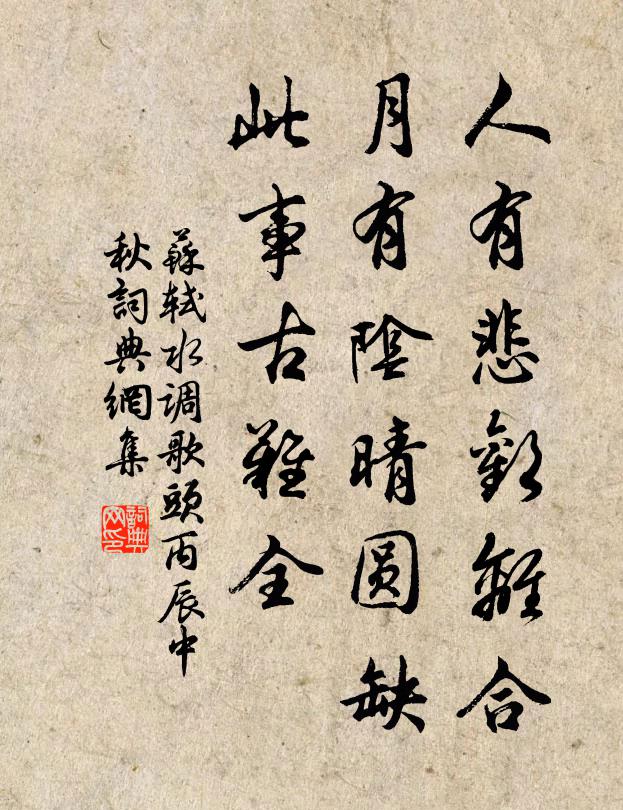 人有悲歡離合
月有陰晴圆缺
此事古難全
蘇軾水调歌頭丙辰中
秋詞典網集
詞典
网印